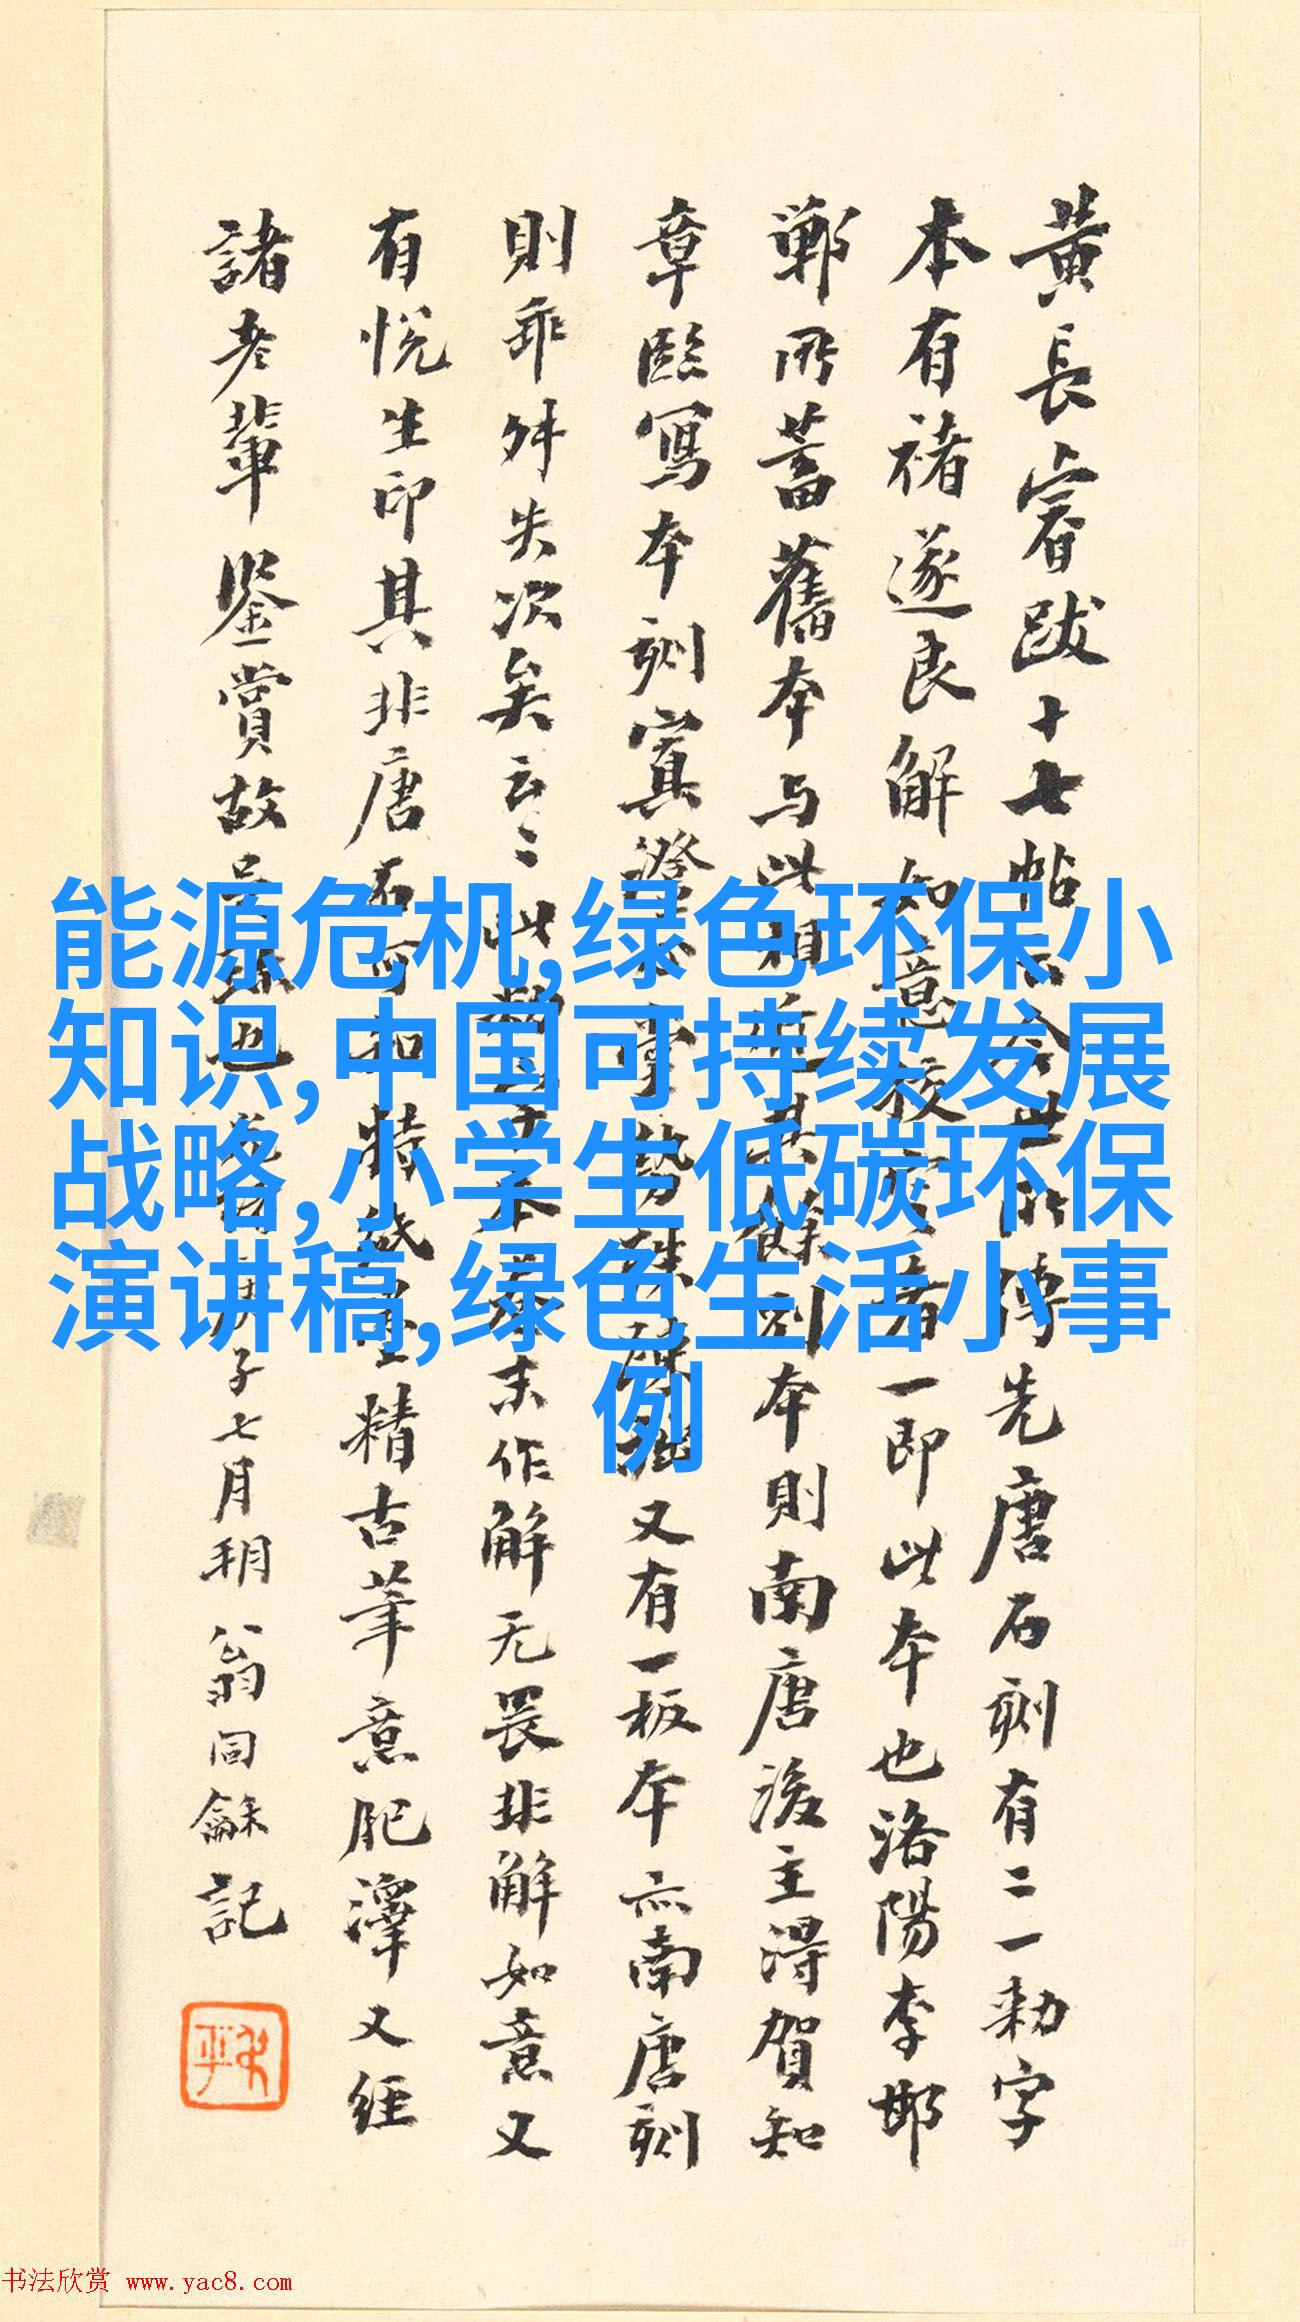 黃長睿跋十七帖
先唐石刻有二一勅字
本有褚遂良解如意校
者一即此本也洛陽李邯
鄲所蓄舊本与此相
其餘别本則南唐後主得賀知
章臨寫本刻寘澄
又有一板本亦南唐刻
則乖舛失次矣云〻此
本卷末作解无畏非解如意又
有悅生印其非唐石可知
精古筆意肥澤又經
諸老輩鑒賞故
也
子七月朔翁同龢記
能源危机,绿色环保小
知识,中国可持续发展
战略,小学生低碳环保
演讲稿,绿色生活小事
例
书法欣赏 www.yac8.com